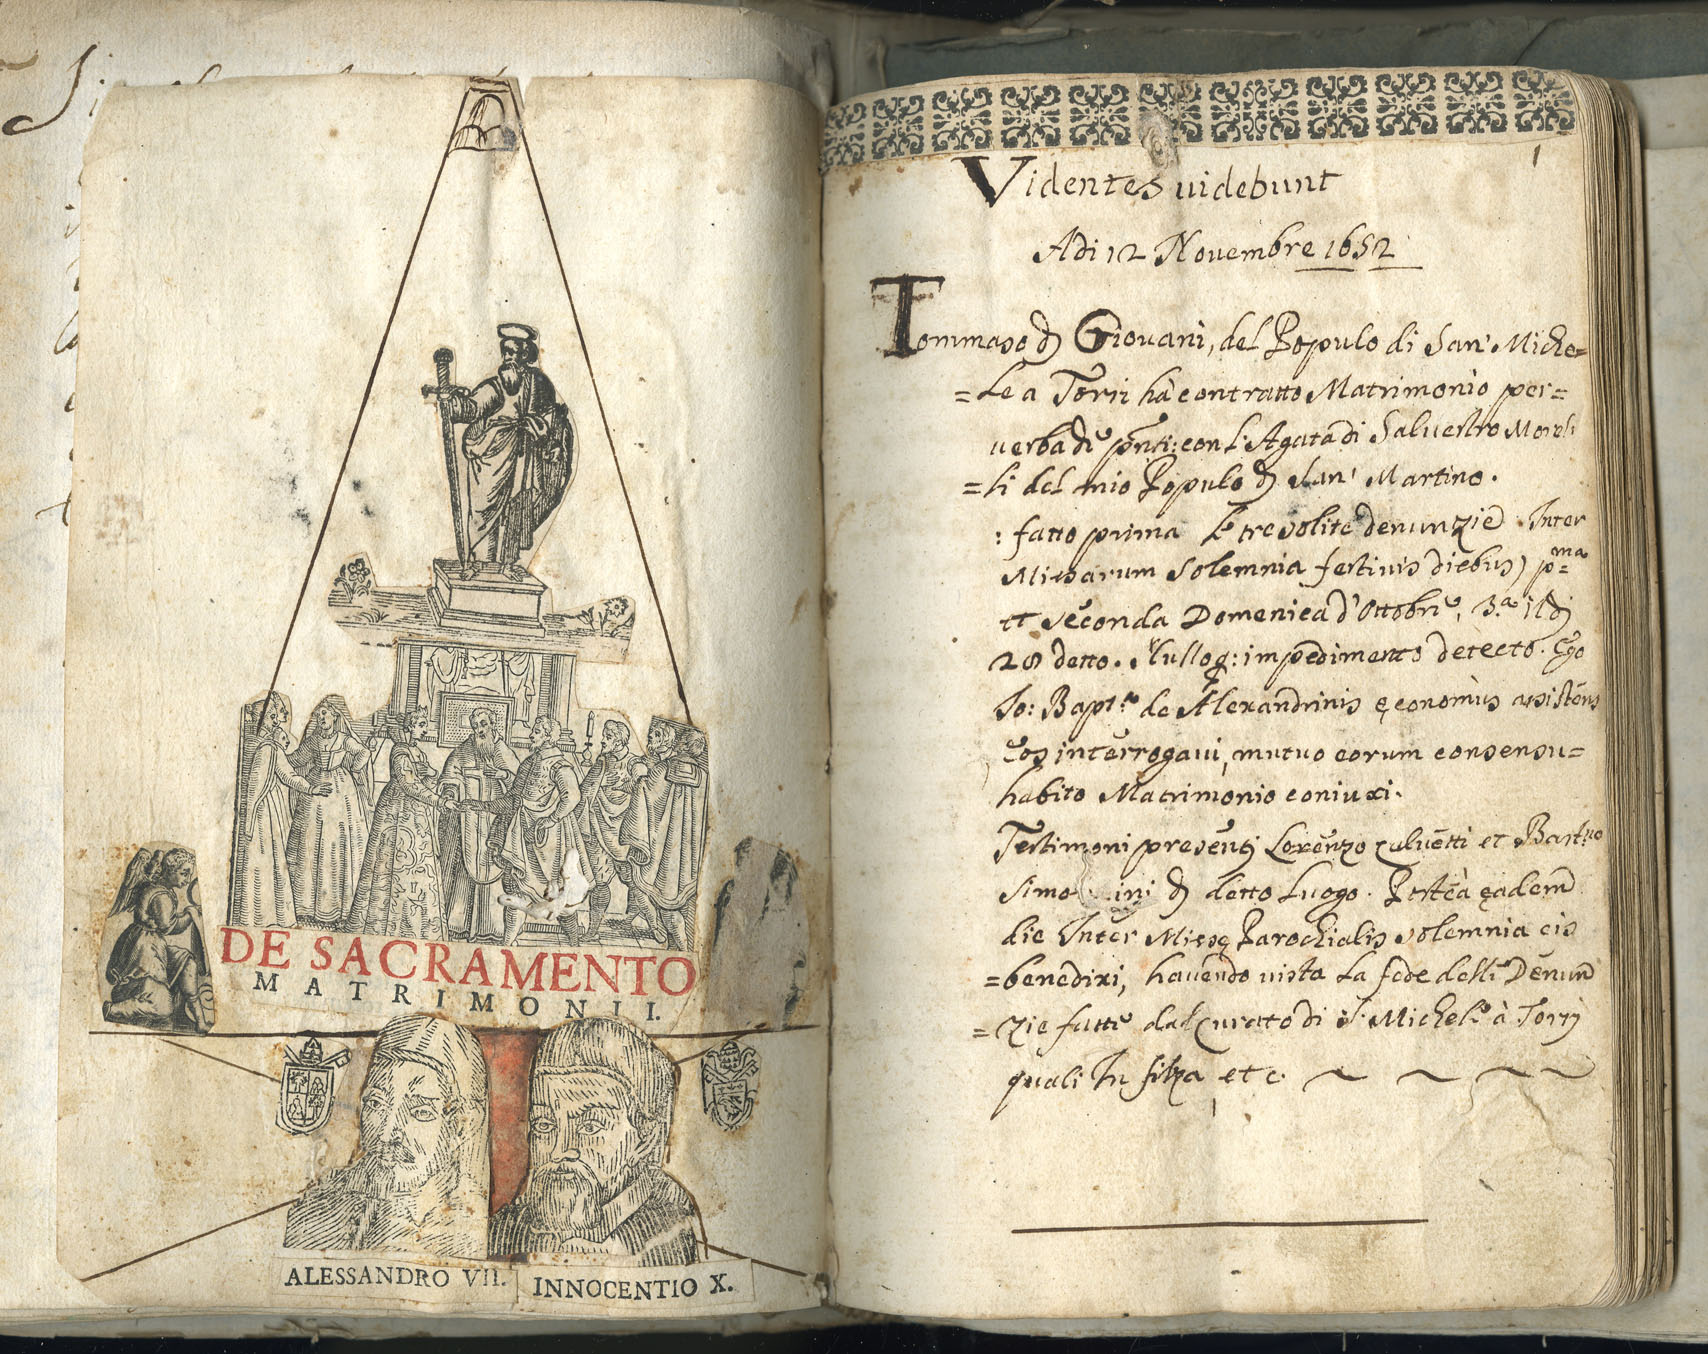 DE SACRAMENTO
MATRIMONII.
ALESSANDRO VII.
INNOCENTIO X.
1
Videntes uidebunt
Adi 12 Novembre 1652
Tommaso di Giouani, del Populo di San' Miche=
=le a Torri hà contratto Matrimonio per=
uerba de pnti: con l: Agata di Saluestro
=li del mio Populo di San' Martino.
: fatto prima le tre solite denunzie Inter
Missarum solemnia festiuis diebus) pma
et seconda Domenica d'Ottobre, 3.a il di
28 detto. Nulloq: impedimento detecto. Ego
Jo: Bapt.a de Alexandrinis economus assistens
eos interrogaui, mutuo eorum consensu=
habito Matrimonio coniuxi.
Testimoni presenti Lorenzo Caluetti et
di detto Luogo. Postea eadem
die Inter Misse Parochialis solemnia eis
=benedixi, hauendo uista la fede delli Denun
=zie fatte dal Curato di S. Michele à Torri
quali In filza etc.